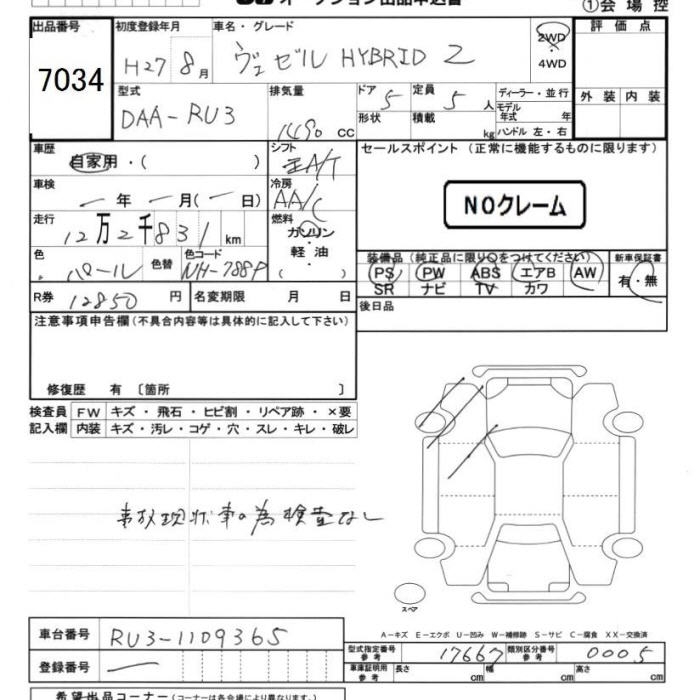 オークション出品申込書
①会場控
出品番号
7034
初度登録年月
H27 8月
車名・グレード
ヴェゼル HYBRID Z
2WD
・
4WD
評価点
外装 内装
型式
DAA-RU3
排気量
1490 cc
ドア 5
定員 5 人
形状
積載 kg
ディーラー・並行
モデル年式 年
ハンドル 左・右
車歴
自家用・( )
シフト
車検
一年一月(一日)
冷房
AA/C
走行
12万2千831km
燃料
ガソリン
・
軽油
色
パール
色替
色コード
NH-788P
R券 12850 円
名変期限 月 日
セールスポイント(正常に機能するものに限ります)
NOクレーム
装備品(純正品に限り○をつけてください)
PS PW ABS エアB AW
SR ナビ TV カワ
新車保証書
有・無
後日品
注意事項申告欄(不具合内容等は具体的に記入して下さい)
修復歴 有〔箇所 〕
検査員記入欄
FW キズ・飛石・ヒビ割・リペア跡・×要
内装 キズ・汚レ・コゲ・穴・スレ・キレ・破レ
事故現状車の為検査なし
スペア
A-キズ E-エクボ U-凹み W-補修跡 S-サビ C-腐食 XX-交換済
車台番号 RU3-1109365
登録番号 一
型式指定番号 参考 17667
類別区分番号 参考 0005
車庫証明用 参考
長さ cm
幅 cm
高さ cm
希望出品コーナー(コーナーは各会場により異なります)